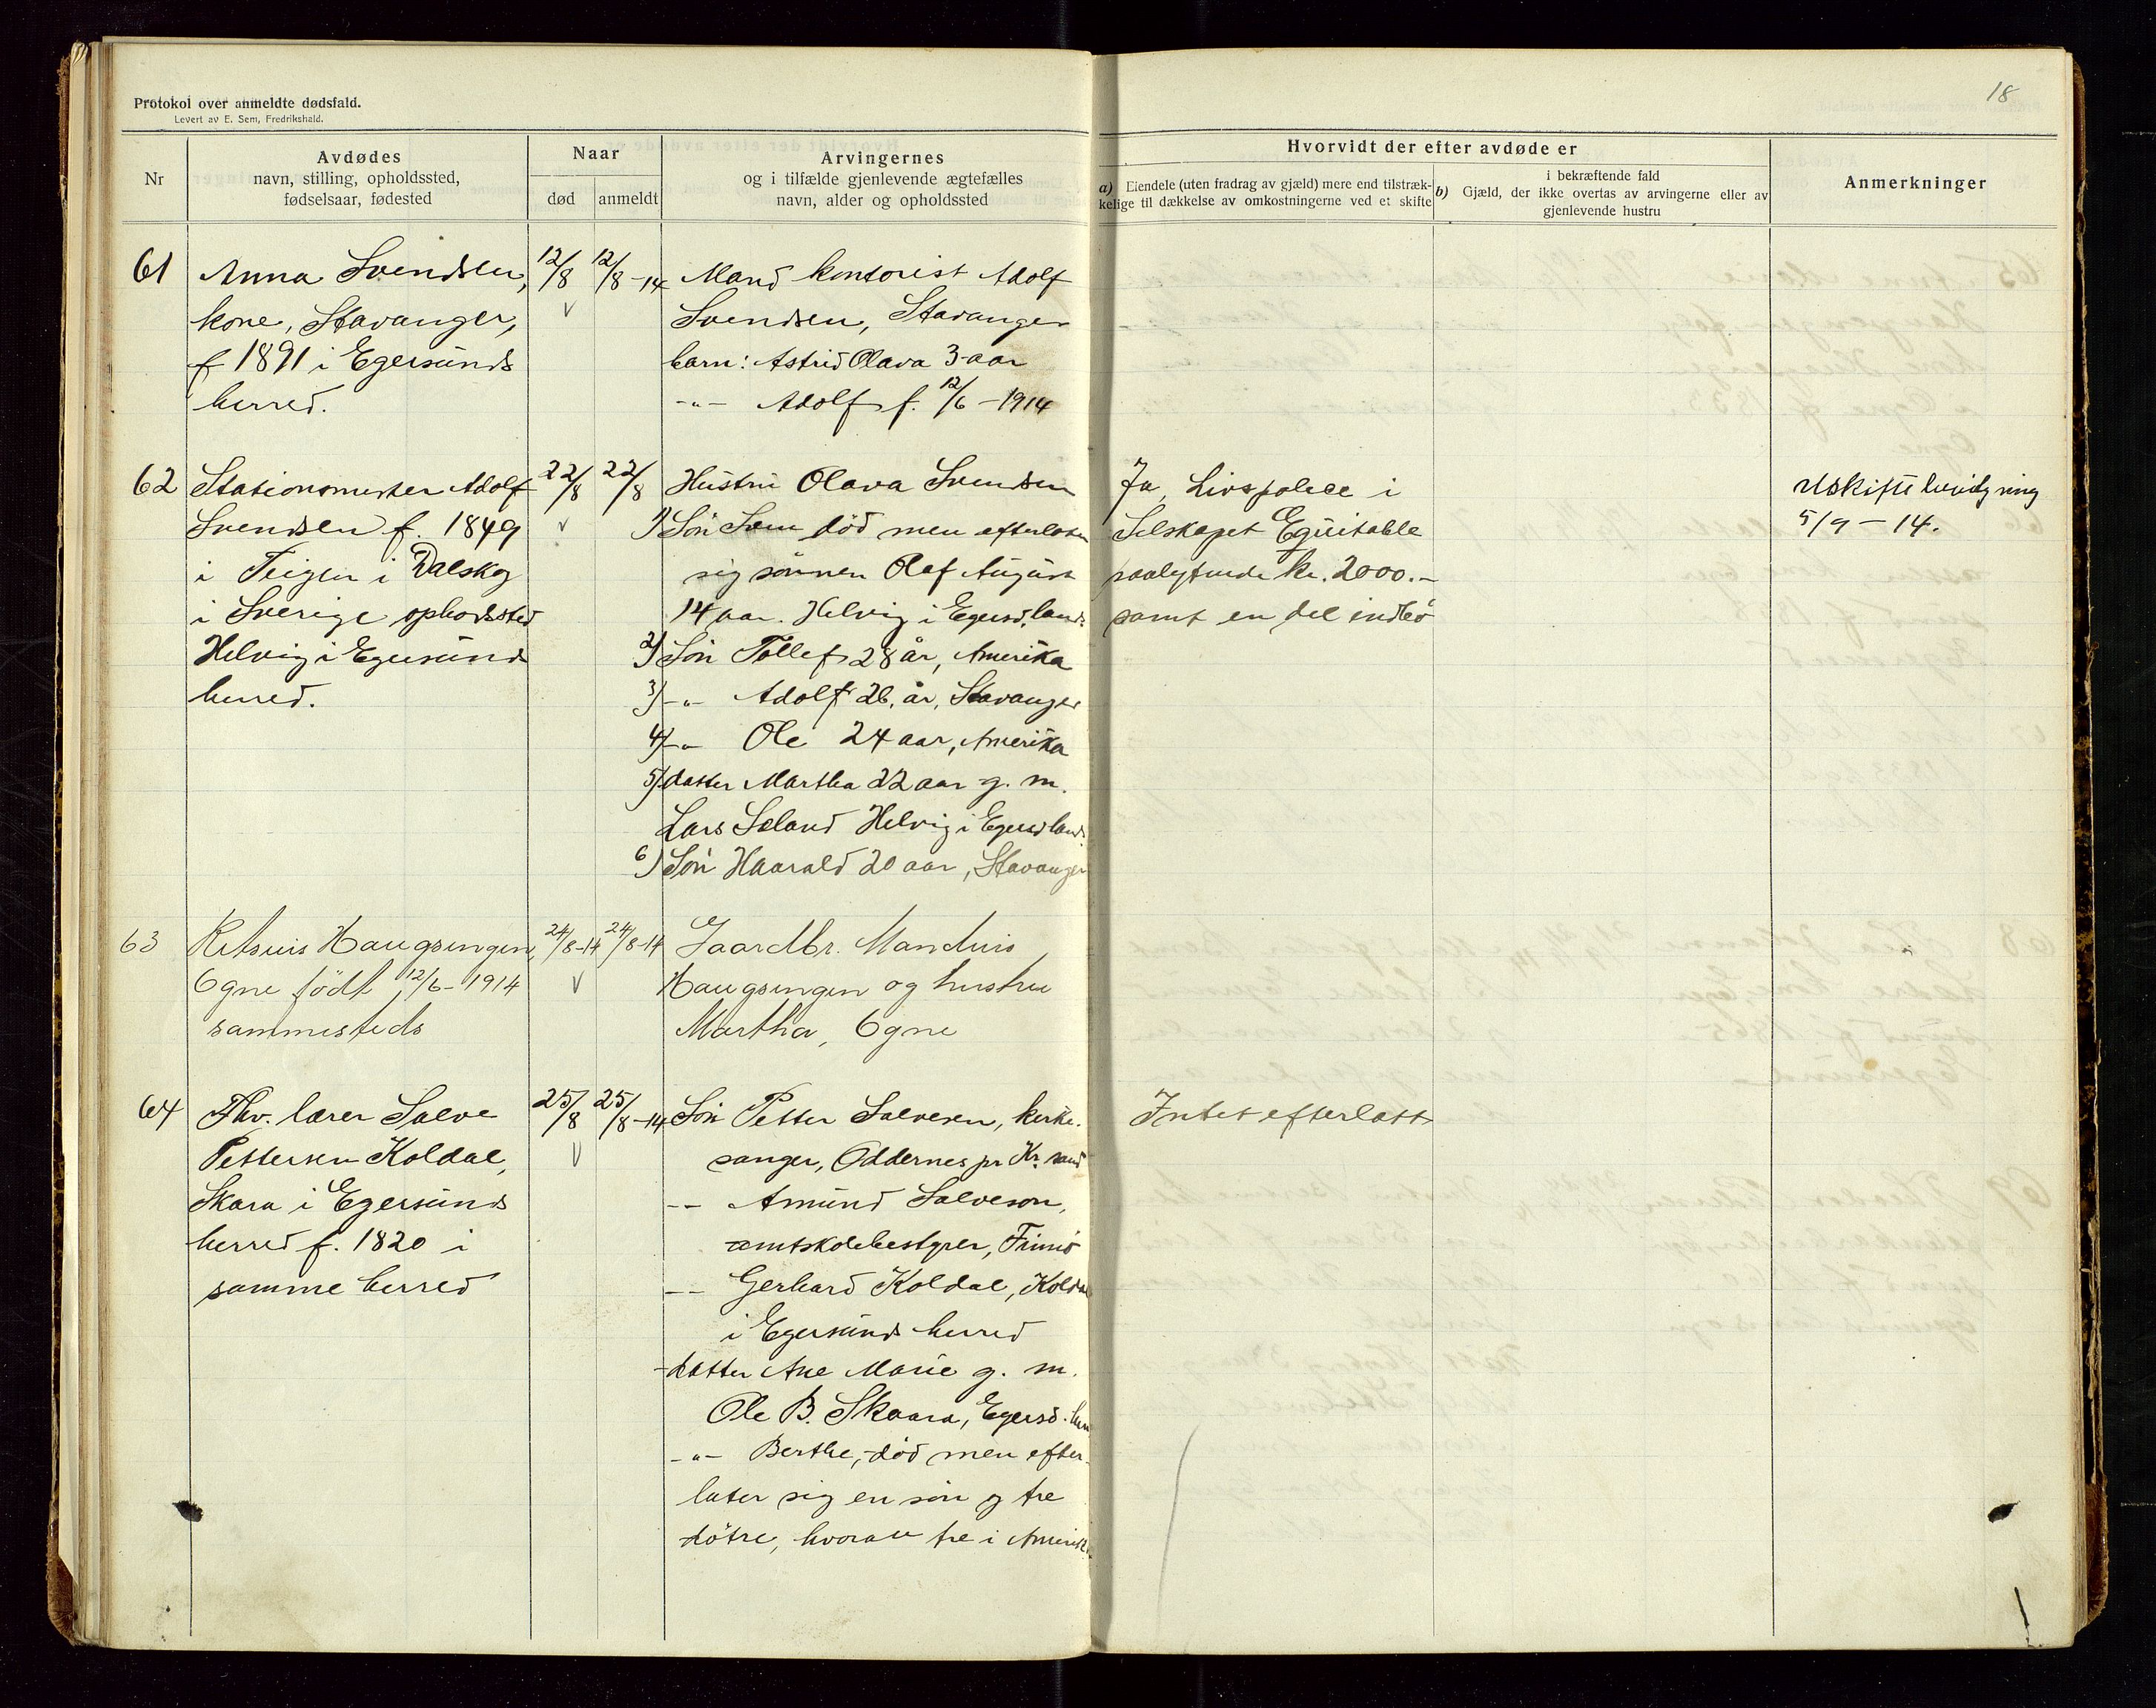 Protokol over anmeldte dødsfald.
Levert av E. Sem, Fredrikshald.
18
Nr
Avdødes
navn, stilling, opholdssted,
fødselsaar, fødested
Naar
død
anmeldt
Arvingernes
og i tilfælde gjenlevende ægtefælles
navn, alder og opholdssted
Hvorvidt der efter avdøde er
a) Eiendele (uten fradrag av gjæld) mere end tilstræk-
kelige til dækkelse av omkostningerne ved et skifte
i bekræftende fald
b) Gjæld, der ikke overtas av arvingerne eller av
gjenlevende hustru
Anmerkninger
61
Anna Svendsen,
kone, Stavanger,
f 1891 i Egersunds
herred.
12/8
12/8-14
Mand kontorist Adolf
Svendsen, Stavanger
barn: Astrid Olava 3 aar
-"- Adolf f. 12/6-1914
62
Stationsmester Adolf
Svendsen f. 1849
i Teigen i Dalskog
i Sverige opholdssted
Helvig i Egersunds
herred.
22/8
22/8
Hustru Olava Svendsen
1) Søn Sven død men efterlater
sig sønnen Olaf August
14 aar. Helvig i Egersd. lands.
2) Søn Tollef 28 år, Amerika
3) -"- Adolf 26 år, Stavanger
4) -"- Ole 24 aar, Amerika
5) datter Martha 22 aar g. m.
Lars Sæland Helvig i Egersd lands.
6) Søn Haarald 20 aar, Stavanger
Ja, Livspolice i
Selskapet Equitable
paalydende kr. 2000.-
samt en del indbo
Uskiftebevilgning
5/9-14.
63
Haugsengen,
Ogne født 12/6-1914
sammesteds
24/8-14
24/8-14
Gaardbr. Mandius
Haugsengen og hustru
Martha, Ogne
64
Fhv. lærer Salve
Pettersen Koldal,
Skara i Egersunds
herred f. 1820 i
samme herred
25/8
25/8-14
Søn Petter Salvesen, kirke-
sanger, Oddernes pr Kr. sand
-- Amund Salveson,
amtskolebestyrer, Finnö
-- Gerhard Koldal, Koldal
i Egersunds herred
-datter Ane Marie g. m.
Ole B. Skaara, Egersd.
-"- Berthe, død men efter-
later sig en søn og tre
døtre, hvorav tre i Amerika
Intet efterlatt